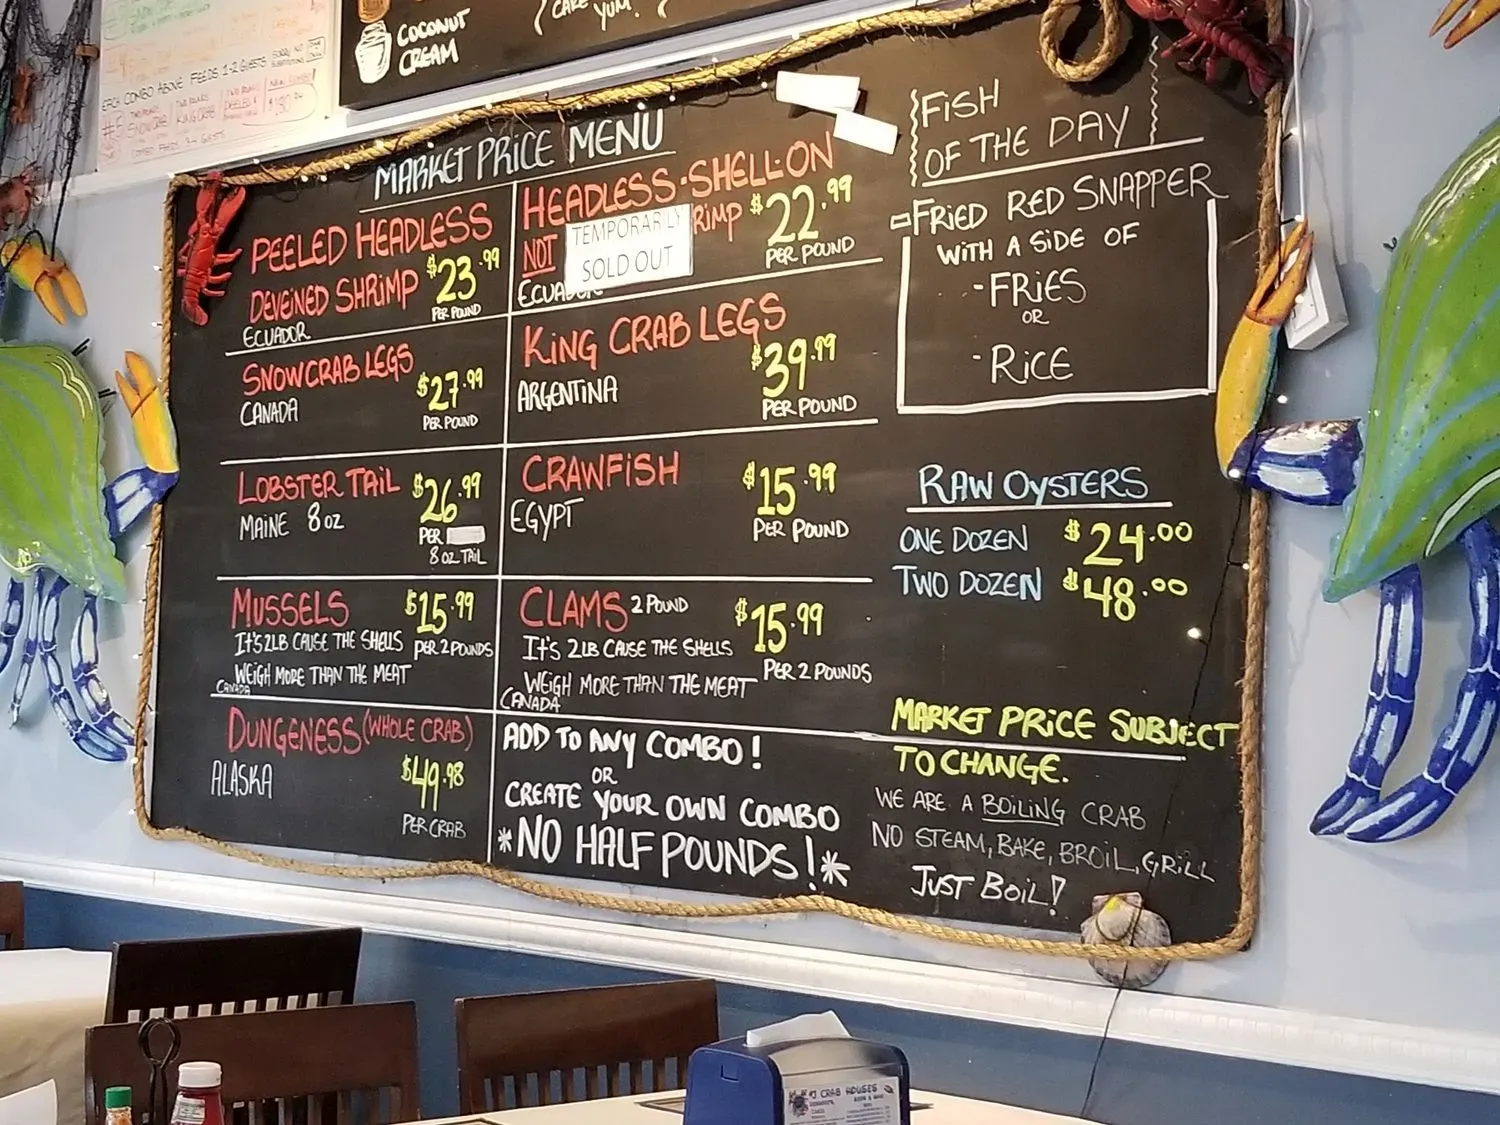 COCONUT
CREAM
CAKE
YUM!
EACH COMBO ABOVE FEEDS 1-2 GUESTS
SNOWCRAB
KING CRAB
MARKET PRICE MENU
PEELED HEADLESS
DEVEINED SHRIMP $23.99
PER POUND
ECUADOR
HEADLESS-SHELL-ON
NOT RIMP $22.99
TEMPORARILY
SOLD OUT
PER POUND
ECUADOR
SNOWCRAB LEGS $27.99
CANADA
PER POUND
KING CRAB LEGS
ARGENTINA $39.99
PER POUND
LOBSTER TAIL $26.99
MAINE 8 OZ
PER
8 OZ TAIL
CRAWFISH $15.99
EGYPT
PER POUND
MUSSELS $15.99
IT'S 2LB CAUSE THE SHELLS PER 2 POUNDS
WEIGH MORE THAN THE MEAT
CANADA
CLAMS 2 POUND $15.99
IT'S 2LB CAUSE THE SHELLS
WEIGH MORE THAN THE MEAT PER 2 POUNDS
CANADA
DUNGENESS (WHOLE CRAB)
ALASKA $49.98
PER CRAB
ADD TO ANY COMBO!
OR
CREATE YOUR OWN COMBO
*NO HALF POUNDS!*
FISH
OF THE DAY
FRIED RED SNAPPER
WITH A SIDE OF
-FRIES
OR
-RICE
RAW OYSTERS
ONE DOZEN $24.00
TWO DOZEN $48.00
MARKET PRICE SUBJECT
TO CHANGE.
WE ARE A BOILING CRAB
NO STEAM, BAKE, BROIL, GRILL
JUST BOIL!
CRAB HOUSES